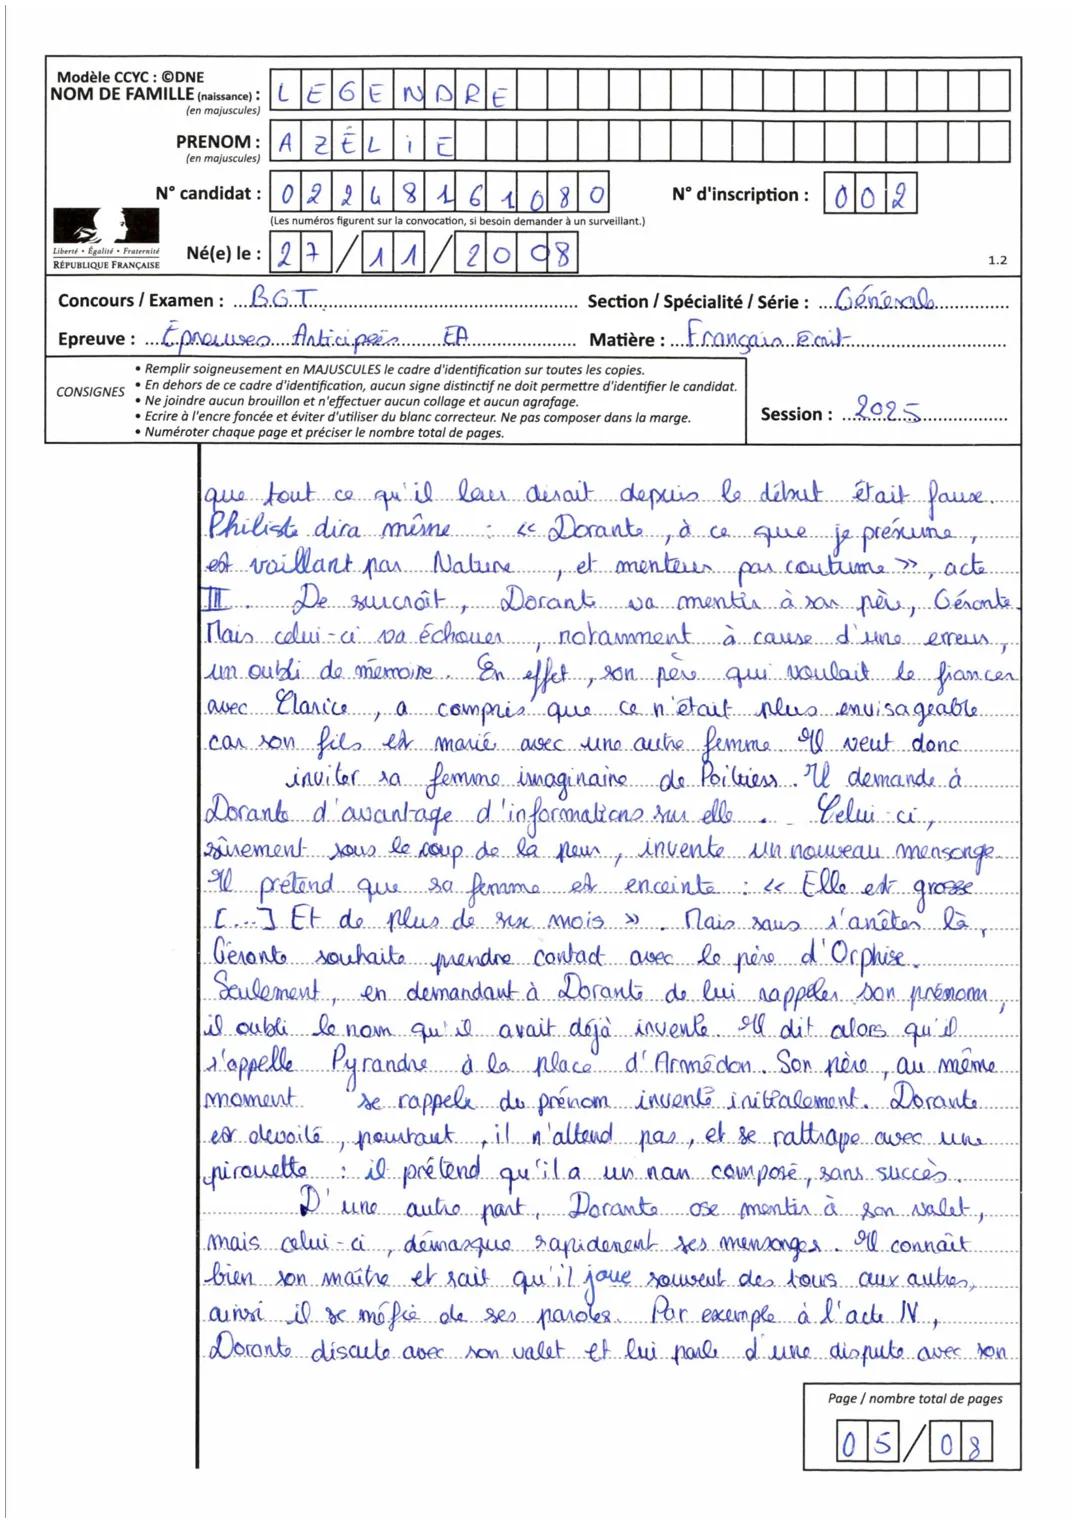 Modèle CCYC : ©DNE
NOM DE FAMILLE (naissance) : LEGENDRE
(en majuscules)
PRENOM : AZÉLiE
(en majuscules)
N° candidat : 02248161080 N° d'inscription : 002
(Les numéros figurent sur la convocation, si besoin demander à un surveillant.)
Liberté • Égalité • Fraternité
RÉPUBLIQUE FRANÇAISE
Né(e) le : 27/11/2008
1.2
Concours / Examen : BGT Section / Spécialité / Série : Générale
Epreuve : Épreuves Anticipées EA Matière : Français écrit
CONSIGNES
• Remplir soigneusement en MAJUSCULES le cadre d'identification sur toutes les copies.
• En dehors de ce cadre d'identification, aucun signe distinctif ne doit permettre d'identifier le candidat.
• Ne joindre aucun brouillon et n'effectuer aucun collage et aucun agrafage.
• Ecrire à l'encre foncée et éviter d'utiliser du blanc correcteur. Ne pas composer dans la marge.
• Numéroter chaque page et préciser le nombre total de pages.
Session : 2025
que tout ce qu'il leur disait depuis le début était fausse.
Philiste dira même : « Dorante, à ce que je présume,
est vaillant par Nature, et menteur par coutume », acte
III. De surcroît, Dorante va mentir à son père, Géronte.
Mais celui-ci va échouer, notamment à cause d'une erreur,
un oubli de mémoire. En effet, son père qui voulait le fiancer
avec Clarice, a compris que ce n'était plus envisageable
car son fils est marié avec une autre femme. Il veut donc
inviter sa femme imaginaire de Poitiers. Il demande à
Dorante d'avantage d'informations sur elle. Celui-ci,
sûrement sous le coup de la peur, invente un nouveau mensonge.
Il prétend que sa femme est enceinte : « Elle est grosse
[...] Et de plus de six mois ». Mais sans s'arrêter là,
Géronte souhaite prendre contact avec le père d'Orphise.
Seulement, en demandant à Dorante de lui rappeler son prénom,
il oubli le nom qu'il avait déjà inventé. Il dit alors qu'il
s'appelle Pyrandre à la place d'Armédon. Son père, au même
moment se rappele du prénom inventé initialement. Dorante
est dévoilé, pourtant, il n'attend pas, et se rattrape avec une
pirouette : il prétend qu'il a un nom composé, sans succès.
D'une autre part, Dorante ose mentir à son valet,
mais celui-ci, démasque rapidement ses mensonges. Il connaît
bien son maître et sait qu'il joue souvent des tours aux autres,
ainsi il se méfie de ses paroles. Par exemple à l'acte IV,
Dorante discute avec son valet et lui parle d'une dispute avec son
Page / nombre total de pages
05/08